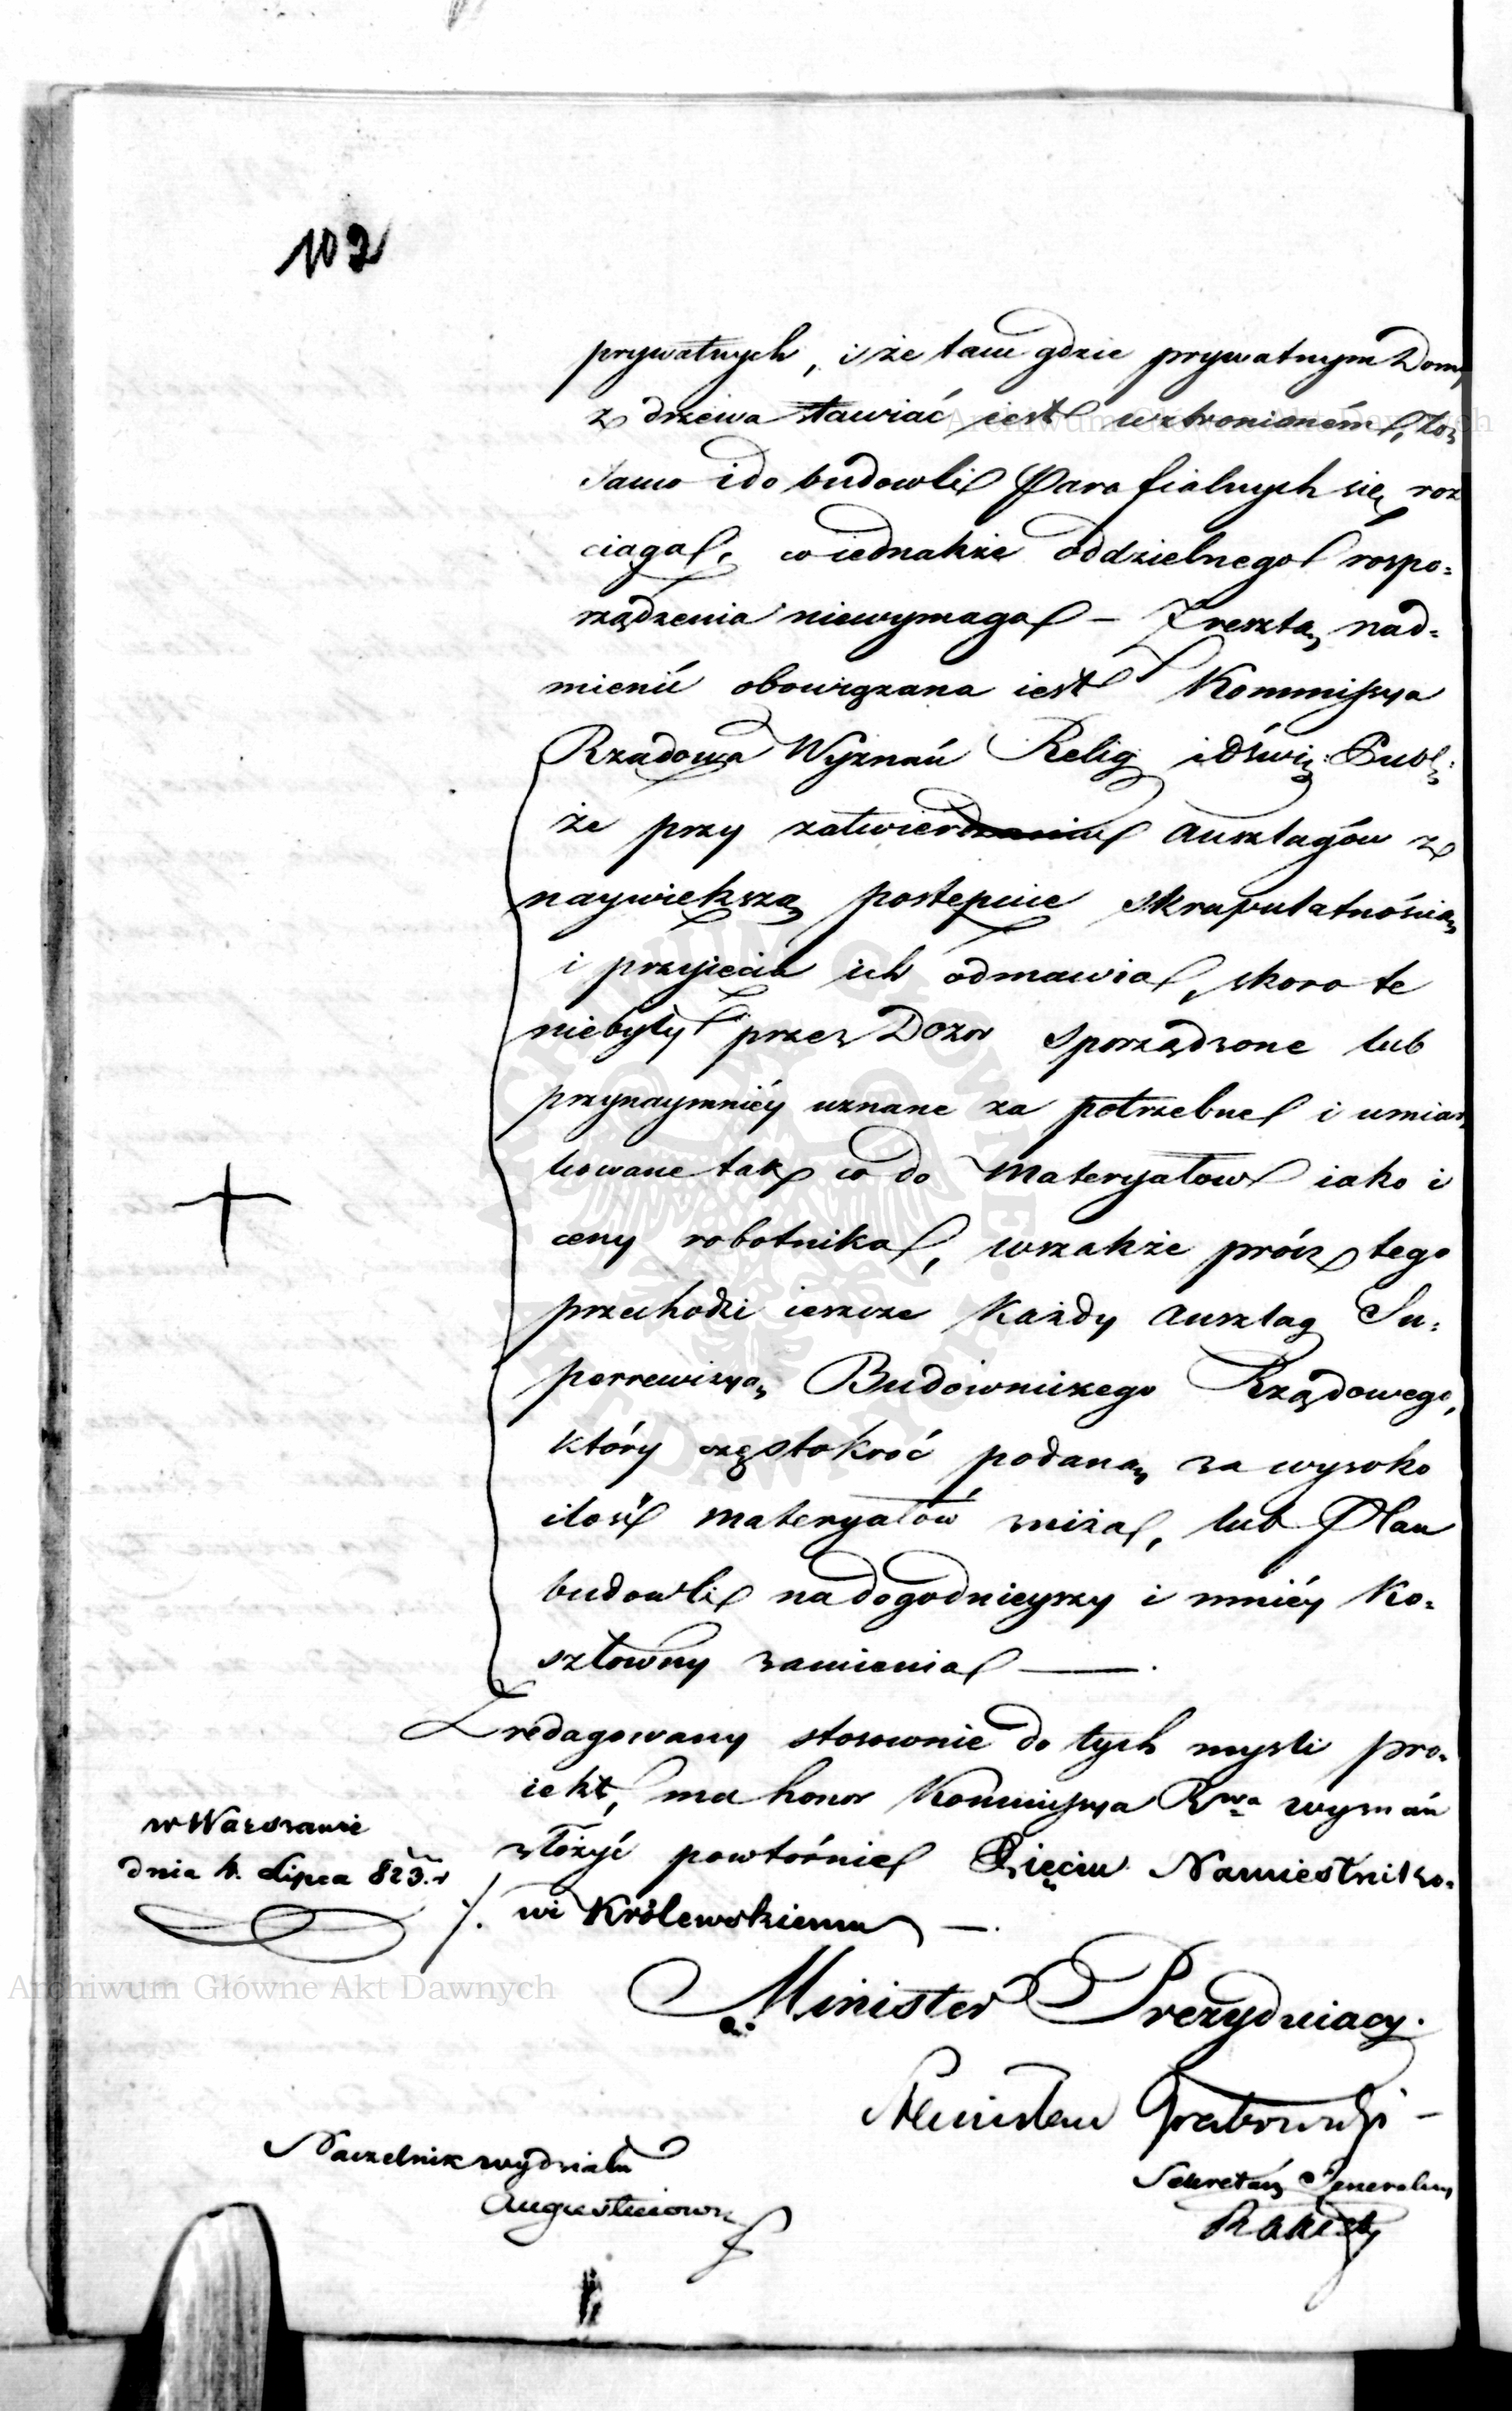 102
prywatnych, i że tam gdzie prywatnym Domy
z drzewa stawiać iest wzbronionem, to
samo i do budowli Parafialnych się roz
ciąga, co iednakże oddzielnego rospo=
rządzenia niewymaga — Zresztą nad=
mienić obowiązana iest Kommissya
Rządowa Wyznań Relig i Oświe: Publ:
że przy zatwierdzaniu ausztagów z
naywiększą postępuie skrupulatnością
i przyięcia ich odmawia, skoro te
niebyły przez Dozor sporządzone lub
przynaymniéy uznane za potrzebne i umiar
kowane tak co do materyałow iako i
ceny robotnika, wszakże prócz tego
przechodzi ieszcze każdy ausztag Su=
perrewizyą Budowniczego Rządowego,
który częstokroć podaną za wysoko
ilość materyałów zniża, lub Plan
budowli na dogodnieyszy i mniéy ko=
sztowny zamienia —
Zredagowany stosownie do tych mysli pro=
iekt, ma honor Kommissya Rwa wyznań
złożyć powtórnie Xięciu Namiestniko=
wi Królewskiemu —
w Warszawie
dnia 4. Lipca 823. r
Minister Prezyduiący.
Stanisław Grabowski —
Sekretarz Generalny
Naczelnik wydziału
Archiwum Główne Akt Dawnych
Archiwum Główne Akt Dawnych
ARCHIWUM GŁÓWNE AKT DAWNYCH